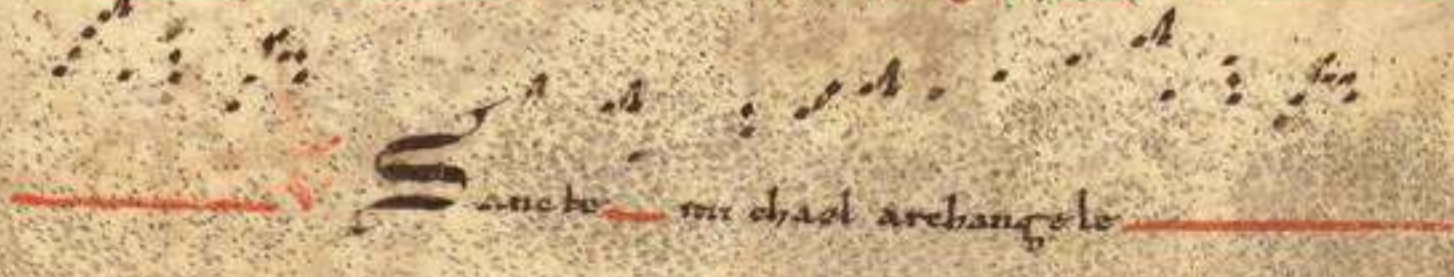 Sancte michael archangele